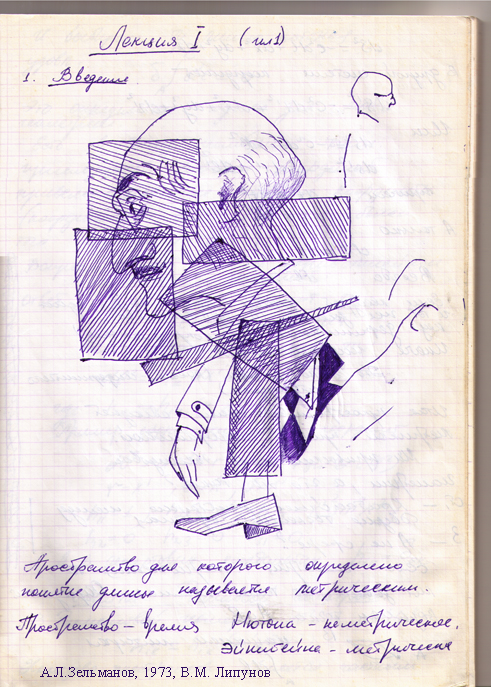 Лекция I (гл 1)
1. Введение.
Пространство для которого определено
понятие длины называется метрическим.
Пространство – время Нютона – неметрическое,
Эйнштейна – метрическое
А.Л.Зельманов, 1973, В.М. Липунов